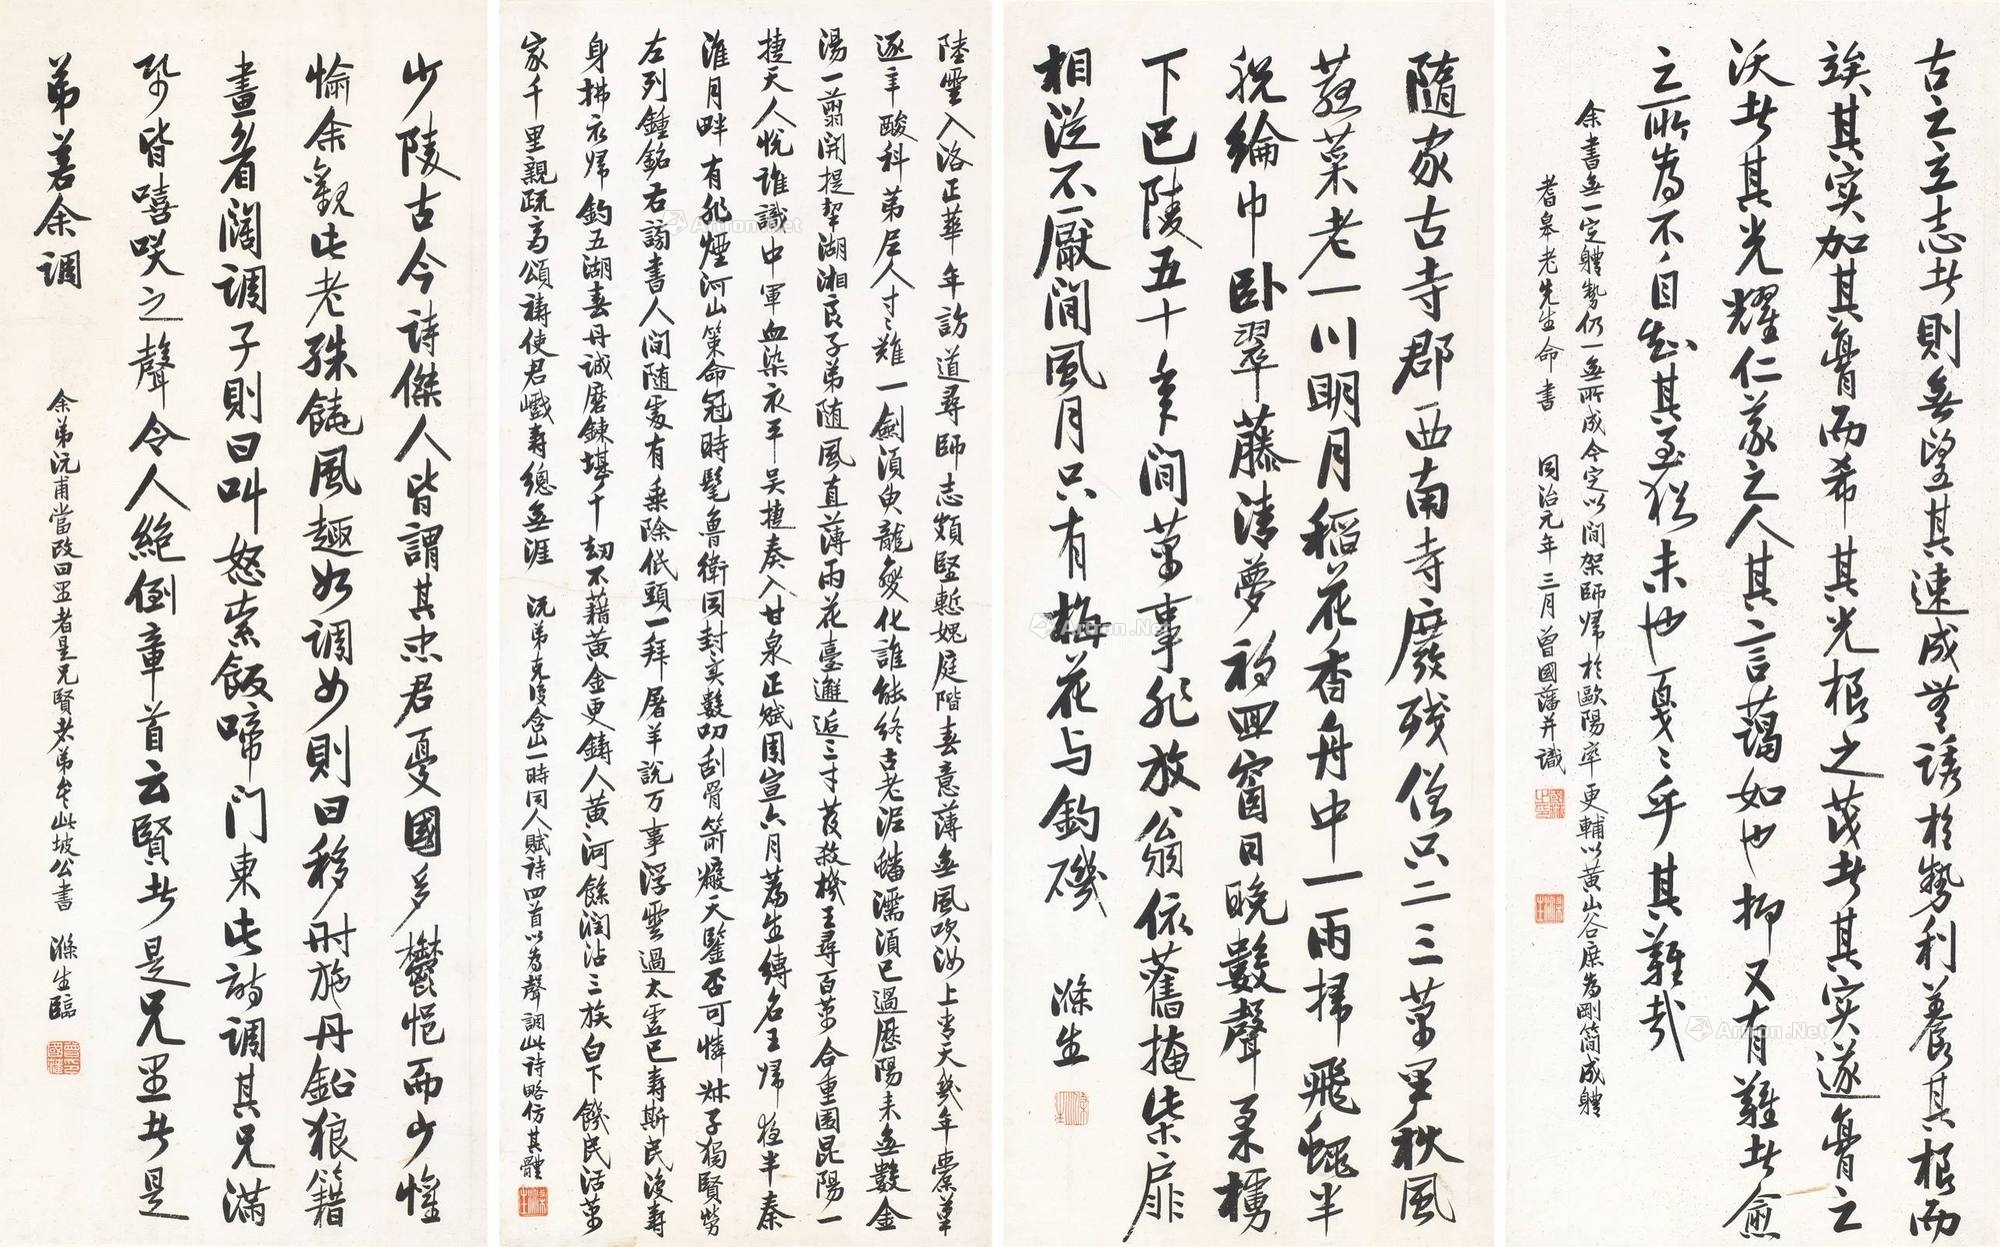 古之立志者則無望其速成無誘於勢利養其根而
竢其实加其膏而希其光根之茂者其实遂膏之
沃者其光耀仁義之人其言藹如也抑又有難者愈
之所為不自知其至猶未也戛〻乎其難哉
余書無一定體勢仍一無所成今定以間架師歸於歐陽率更輔以黄山谷庶為剛簡成體
耆皋老先生命書 同治元年三月曾國藩并識
隨家古寺郡西南寺廢殘僧只二三萬里秋風
菰菜老一川明月稻花香舟中一雨掃飛蠅半
稅綸巾卧翠藤清夢初回窗日晚數聲柔櫓
下巴陵五十年間萬事非放翁依舊掩柴扉
相從不厭閒風月只有梅花与釣磯
滌生
陸雲入洛正華年訪道尋師志頗堅慙愧庭階春意薄無風吹汝上青天幾年橐筆
逐辛酸科第尼人寸〻難一劍須臾龍變化誰能終古老泥蟠濡須已過歷陽来無數金
湯一翦開提挈湖湘良子弟随風直薄雨花臺邂逅三才發殺機王尋百萬合重圍昆陽一
捷天人悅誰識中軍血染衣平吳捷奏入甘泉正賦周宣六月篇生縛名王歸夜半秦
淮月畔有非煙河山策命冠時髦魯衛同封實數叨刮骨箭瘢天鑒否可憐叔子獨賢勞
左列鍾銘右謗書人間随處有乘除低頭一拜屠羊說万事浮雲過太虚已壽斯民復壽
身拂衣歸釣五湖春丹誠磨鍊堪千劫不藉黄金更鑄人黄河餘潤沾三族白下饑民活萬
家千里親疏高頌禱使君巇壽總無涯 沅弟克復含山一時同人賦詩四首以為聲調此詩略仿其體
少陵古今詩傑人皆謂其忠君憂國多鬱悒而少懽
愉余觀此老殊饒風趣如調女則曰移時施丹鉛狼籍
畫眉闊調子則曰叫怒索飯啼門東此詩調其兄滿
紙皆嘻笑之聲令人絶倒章首云賢者是兄愚者是
弟若余調
余弟沅甫當改曰愚者是兄賢者弟矣此坡公書 滌生臨